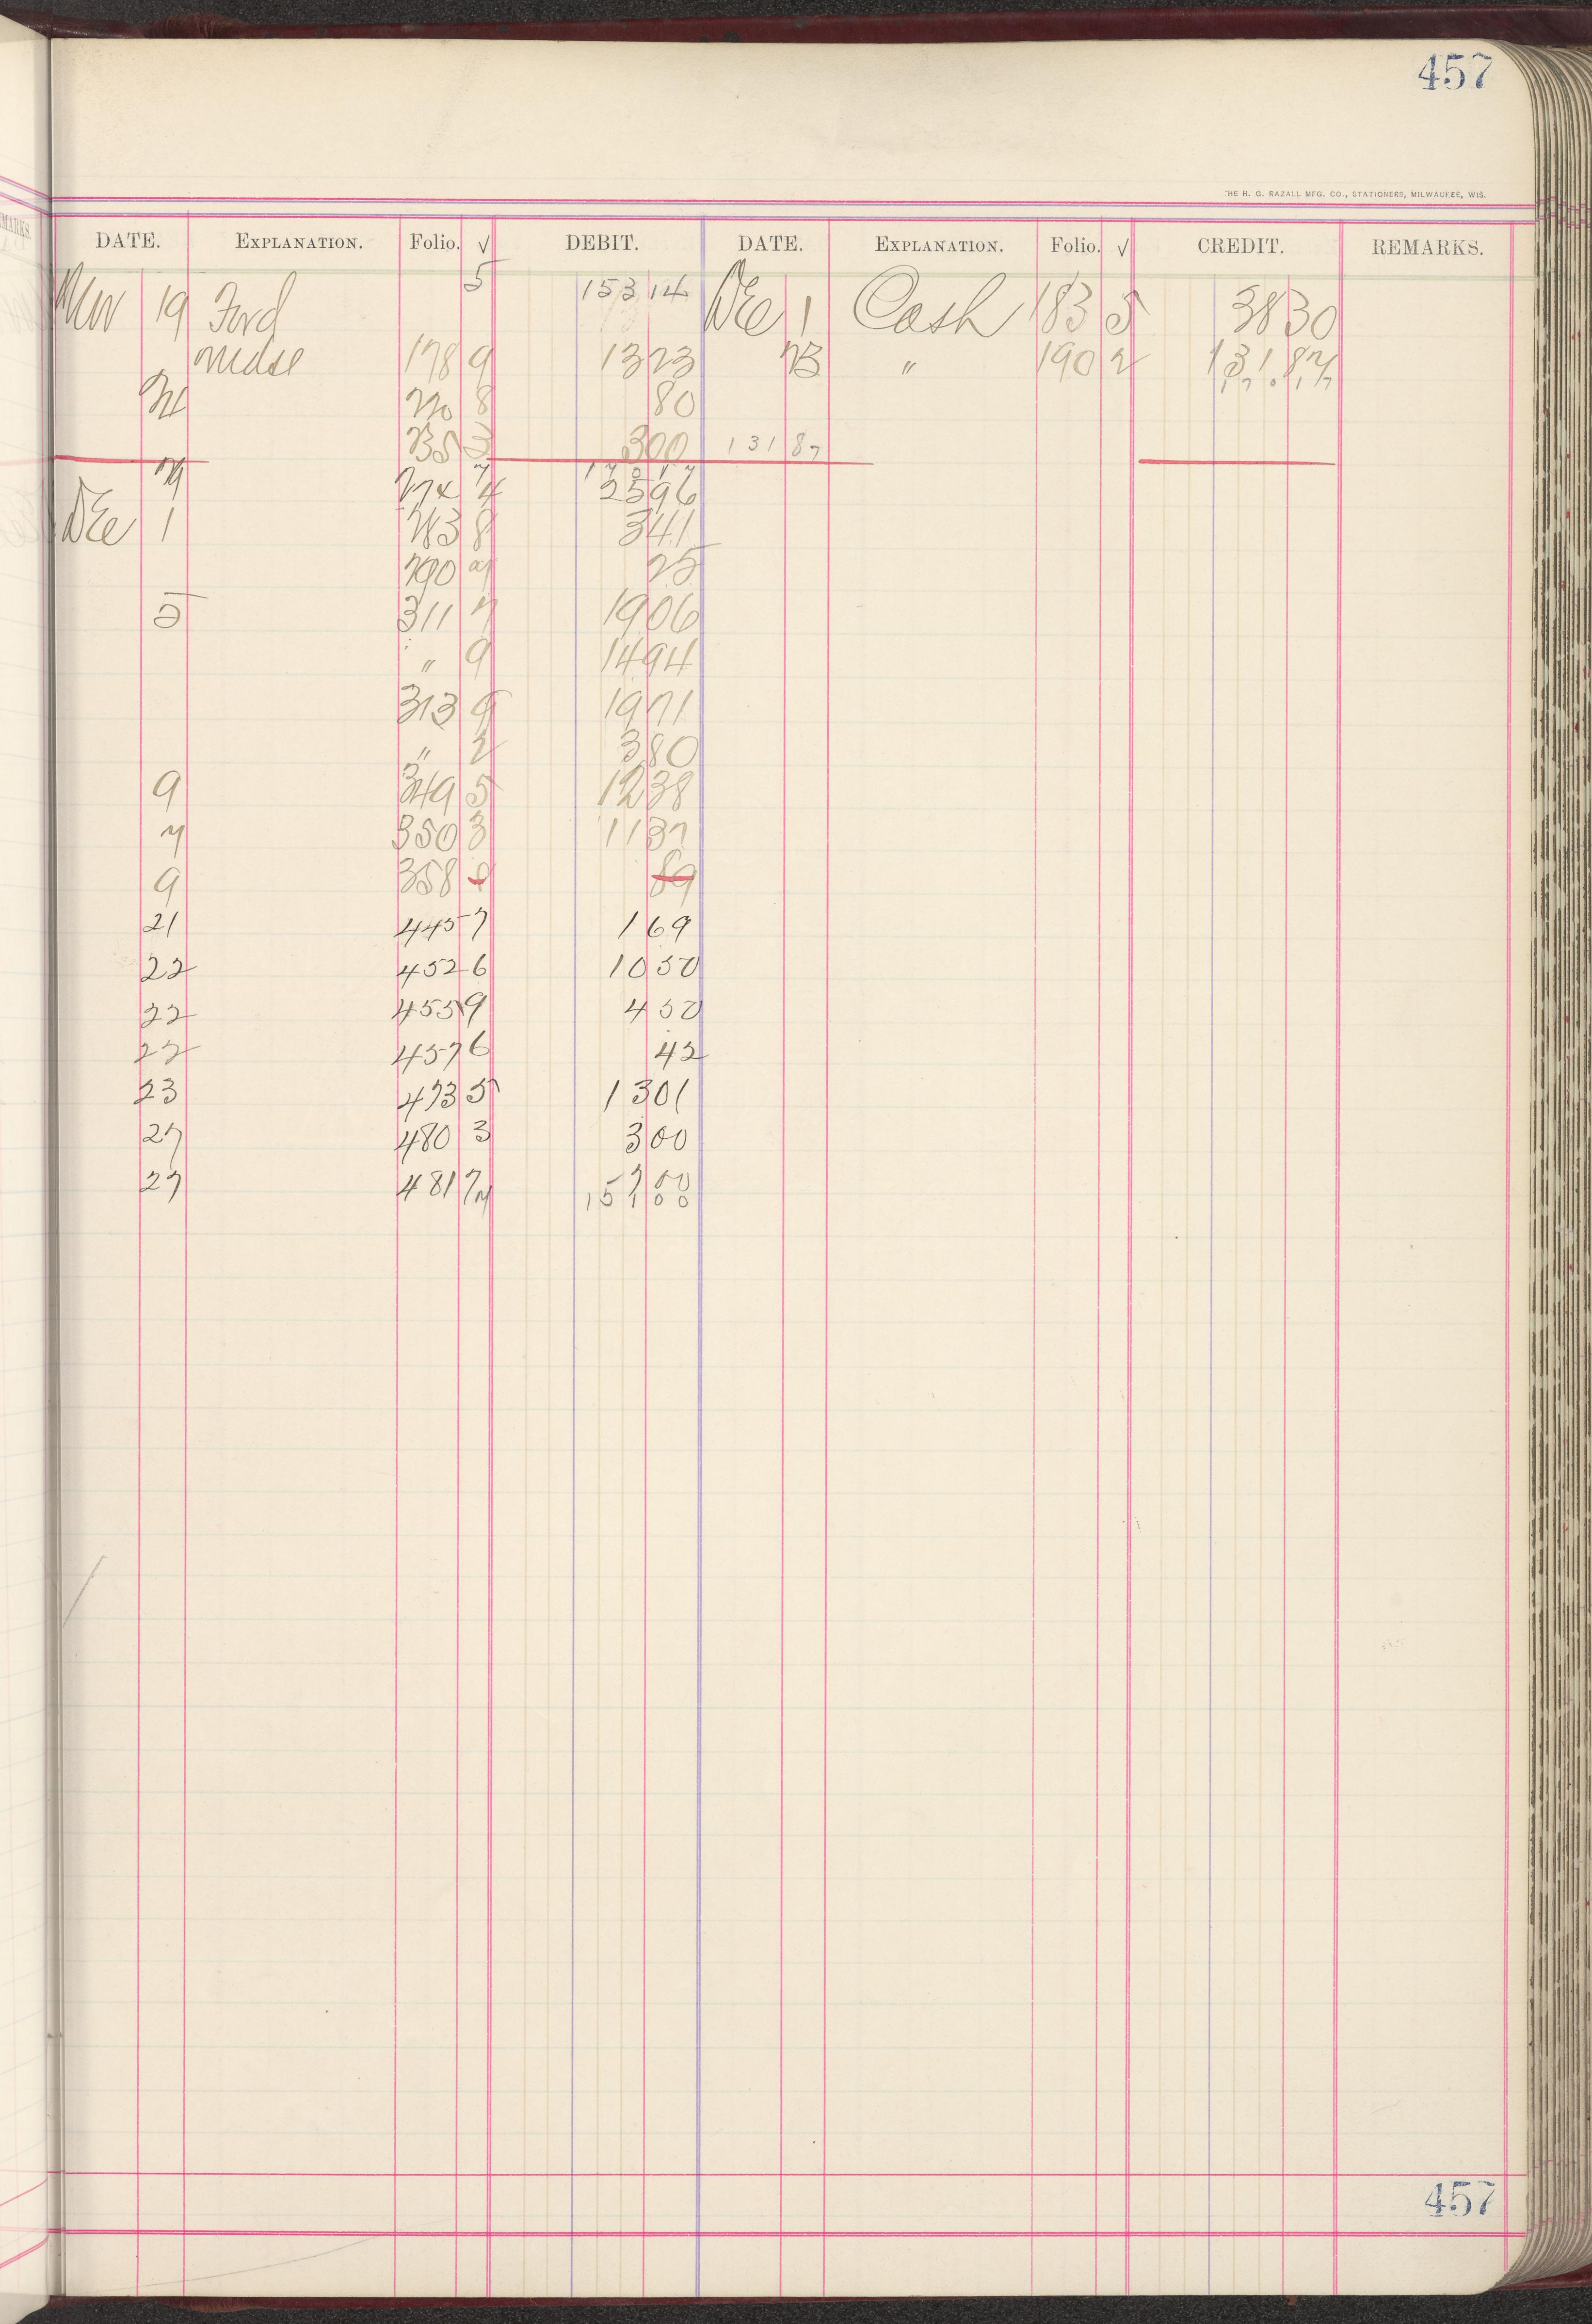 457
THE H. G. RAZALL MFG. CO., STATIONERS, MILWAUKEE, WIS.
DATE. EXPLANATION. Folio. √ DEBIT. DATE. EXPLANATION. Folio. √ CREDIT. REMARKS.
Nov 19 Ford 5 153 14 Dec 1 Cash 183 5 38 30
Mdse 178 9 13 23 23 " 190 2 131 87
24 220 8 80
235 3 3 00 131 87
29 274 4 25 96
Dec 1 283 8 3 41
290 25
5 311 7 19 06
" 9 14 94
313 9 19 71
" 2 3 80
9 349 5 12 38
7 350 3 11 37
9 358 89
21 445 7 1 69
22 452 6 10 50
22 455 9 4 50
22 457 6 42
23 473 5 13 01
27 480 3 3 00
27 481 7 7 00
151 00
457